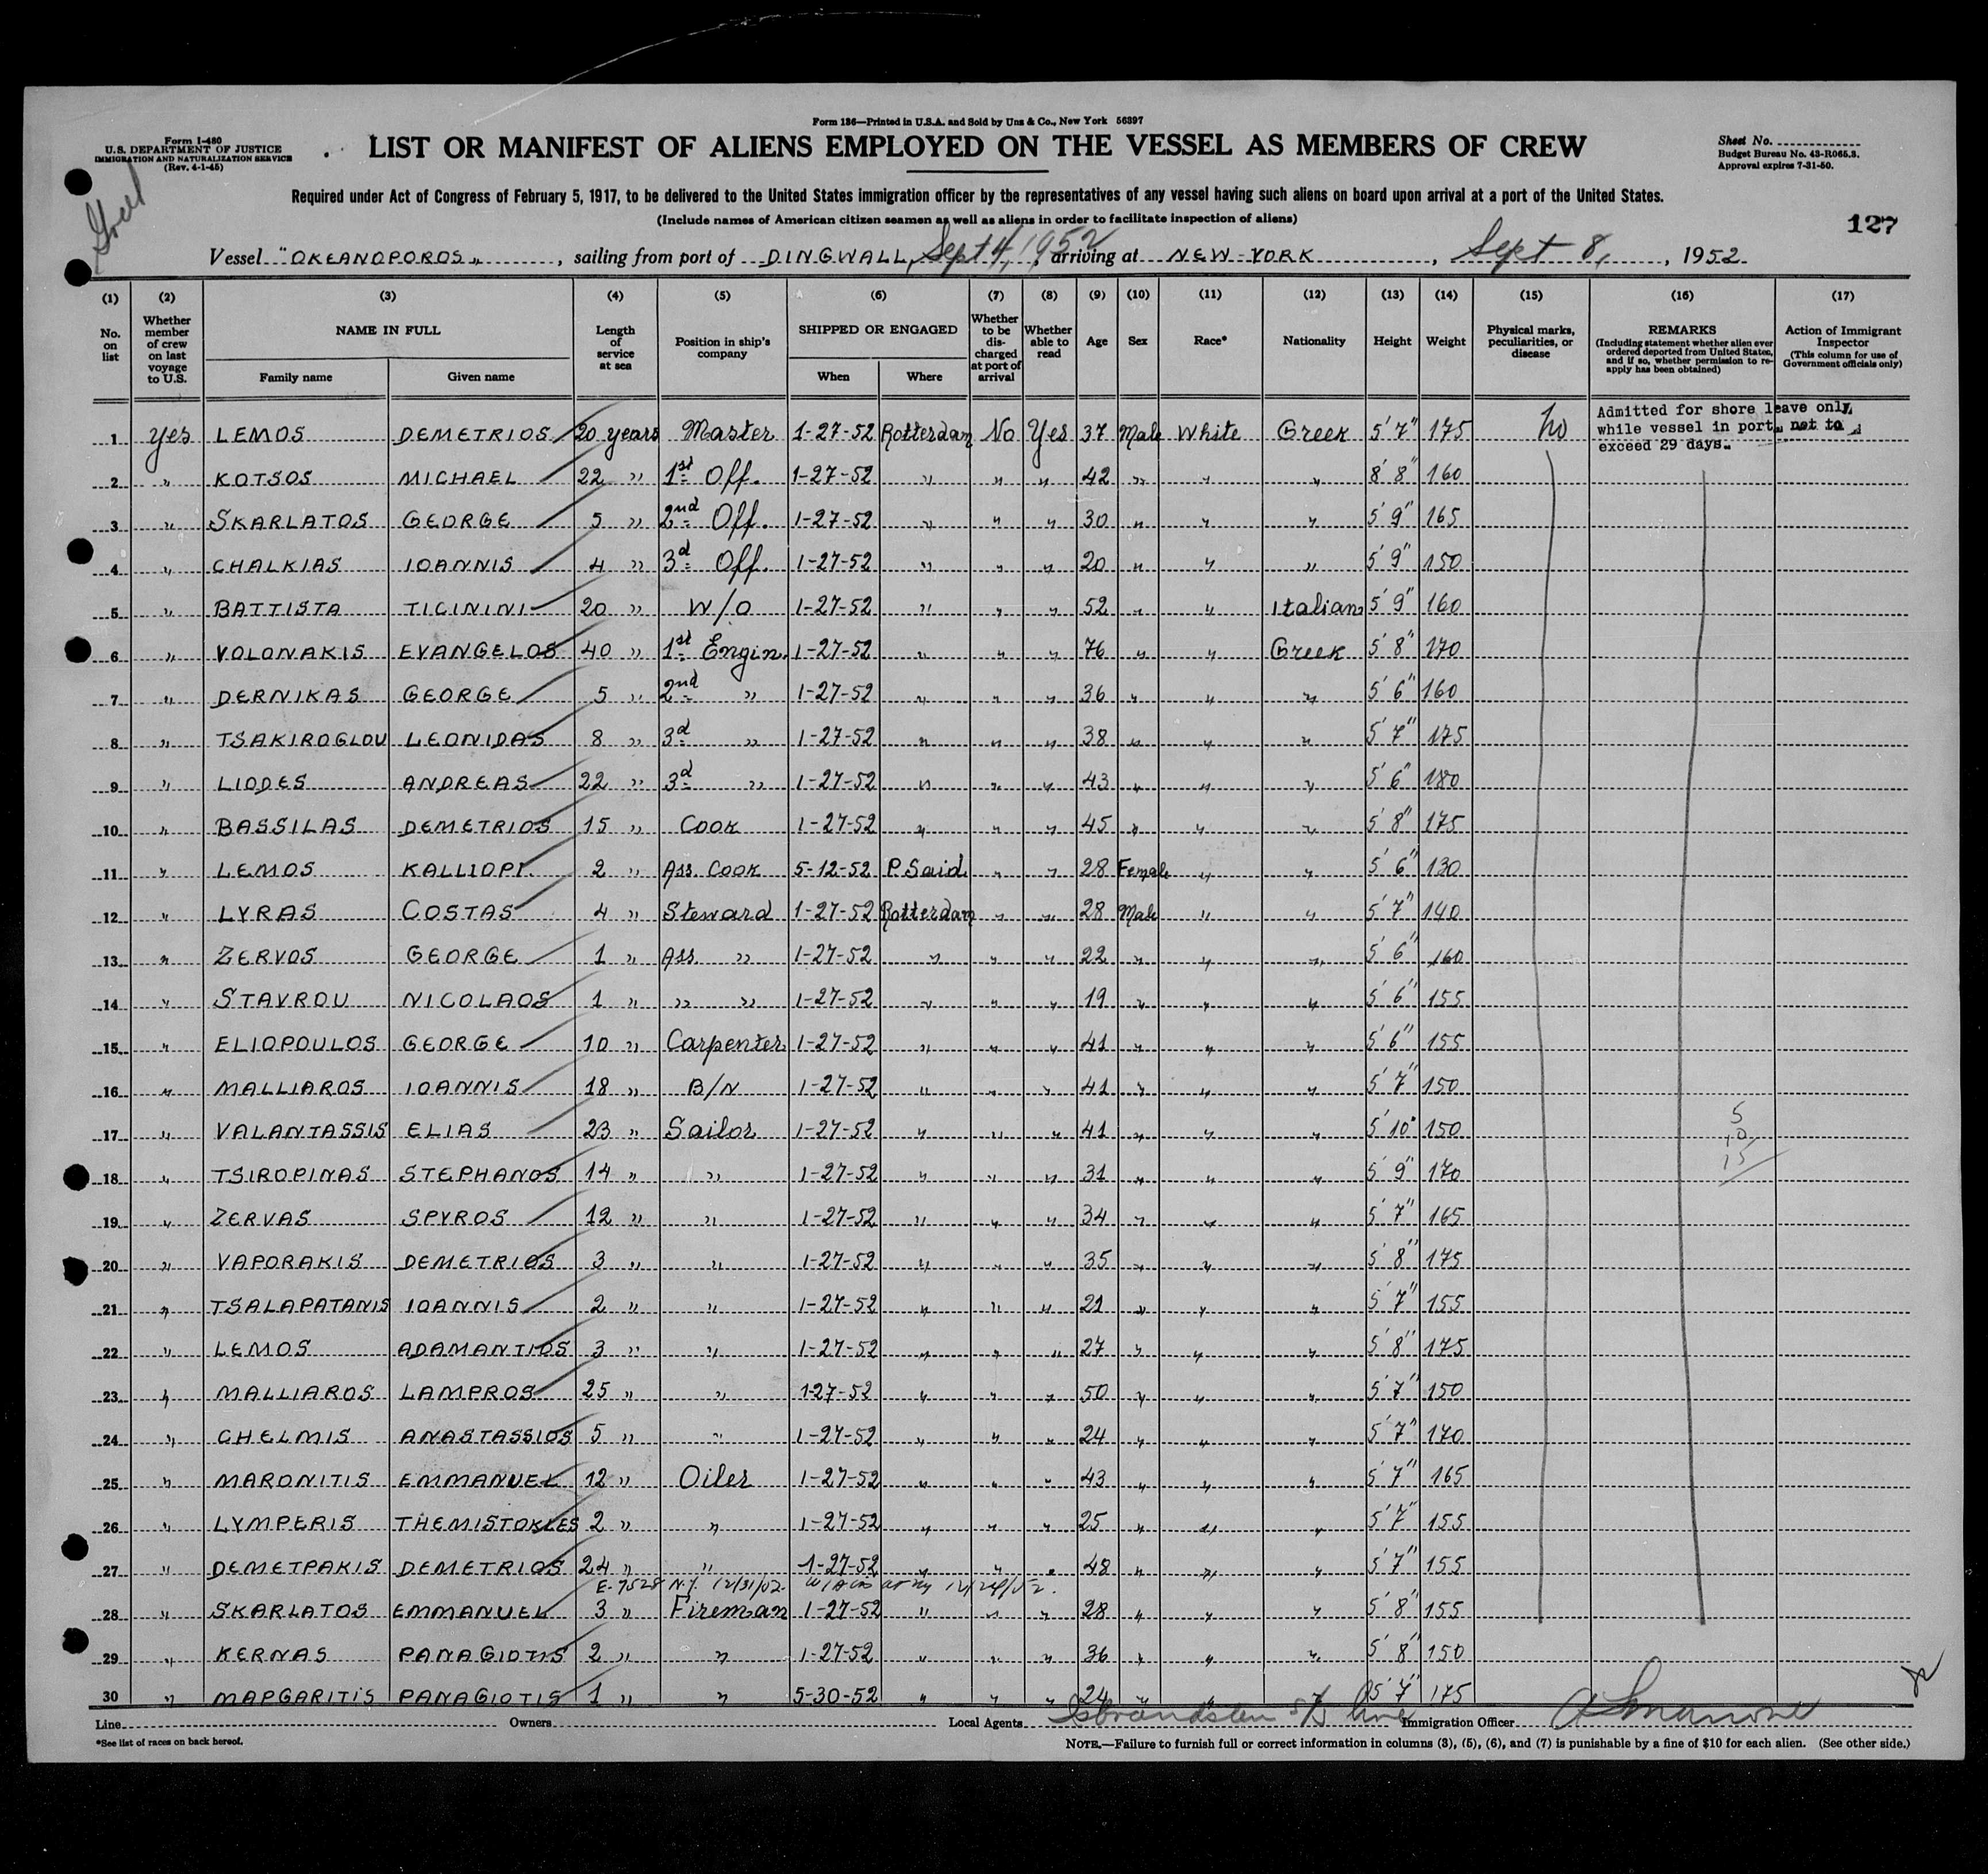 Form 136—Printed in U.S.A. and Sold by Unz & Co., New York 56397
Form I-480
U.S. DEPARTMENT OF JUSTICE
IMMIGRATION AND NATURALIZATION SERVICE
(Rev. 4-1-45)
LIST OR MANIFEST OF ALIENS EMPLOYED ON THE VESSEL AS MEMBERS OF CREW
Sheet No.
Budget Bureau No. 43-R065.3.
Approval expires 7-31-50.
Required under Act of Congress of February 5, 1917, to be delivered to the United States immigration officer by the representatives of any vessel having such aliens on board upon arrival at a port of the United States.
(Include names of American citizen seamen as well as aliens in order to facilitate inspection of aliens)
127
Vessel "OKEANOPOROS", sailing from port of DINGWALL, Sept 4, 1952, arriving at NEW-YORK, Sept 8, 1952
(1) (2) (3) (4) (5) (6) (7) (8) (9) (10) (11) (12) (13) (14) (15) (16) (17)
No. on list
Whether member of crew on last voyage to U.S.
NAME IN FULL
Family name Given name
Length of service at sea
Position in ship's company
SHIPPED OR ENGAGED
When Where
Whether to be discharged at port of arrival
Whether able to read
Age
Sex
Race*
Nationality
Height
Weight
Physical marks, peculiarities, or disease
REMARKS
(Including statement whether alien ever ordered deported from United States, and if so, whether permission to reapply has been obtained)
Action of Immigrant Inspector
(This column for use of Government officials only)
1 Yes LEMOS DEMETRIOS 20 years Master 1-27-52 Rotterdam No Yes 37 Male White Greek 5'7" 175 No
Admitted for shore leave only,
while vessel in port, not to
exceed 29 days.
2 " KOTSOS MICHAEL 22 " 1st Off. 1-27-52 " " " 42 " " " 8'8" 160
3 " SKARLATOS GEORGE 5 " 2nd Off. 1-27-52 " " " 30 " " " 5'9" 165
4 " CHALKIAS IOANNIS 4 " 3d Off. 1-27-52 " " " 20 " " " 5'9" 150
5 " BATTISTA TICININI 20 " W/O 1-27-52 " " " 52 " " Italian 5'9" 160
6 " VOLONAKIS EVANGELOS 40 " 1st Engin. 1-27-52 " " " 76 " " Greek 5'8" 170
7 " DERNIKAS GEORGE 5 " 2nd " 1-27-52 " " " 36 " " " 5'6" 160
8 " TSAKIROGLOU LEONIDAS 8 " 3d " 1-27-52 " " " 38 " " " 5'7" 175
9 " LIODES ANDREAS 22 " 3d " 1-27-52 " " " 43 " " " 5'6" 180
10 " BASSILAS DEMETRIOS 15 " Cook 1-27-52 " " " 45 " " " 5'8" 175
11 " LEMOS KALLIOPI. 2 " Ass. Cook 5-12-52 P.Said " " 28 Female " " 5'6" 130
12 " LYRAS COSTAS 4 " Steward 1-27-52 Rotterdam " " 28 Male " " 5'7" 140
13 " ZERVOS GEORGE 1 " Ass. " 1-27-52 " " " 22 " " " 5'6" 160
14 " STAVROU NICOLAOS 1 " " " 1-27-52 " " " 19 " " " 5'6" 155
15 " ELIOPOULOS GEORGE 10 " Carpenter 1-27-52 " " " 41 " " " 5'6" 155
16 " MALLIAROS IOANNIS 18 " B/N 1-27-52 " " " 41 " " " 5'7" 150
17 " VALANTASSIS ELIAS 23 " Sailor 1-27-52 " " " 41 " " " 5'10" 150
5
10
15
18 " TSIROPINAS STEPHANOS 14 " " 1-27-52 " " " 31 " " " 5'9" 170
19 " ZERVAS SPYROS 12 " " 1-27-52 " " " 34 " " " 5'7" 165
20 " VAPORAKIS DEMETRIOS 3 " " 1-27-52 " " " 35 " " " 5'8" 175
21 " TSALAPATANIS IOANNIS 2 " " 1-27-52 " " " 21 " " " 5'7" 155
22 " LEMOS ADAMANTIOS 3 " " 1-27-52 " " " 27 " " " 5'8" 175
23 " MALLIAROS LAMPROS 25 " " 1-27-52 " " " 50 " " " 5'7" 150
24 " CHELMIS ANASTASSIOS 5 " " 1-27-52 " " " 24 " " " 5'7" 170
25 " MARONITIS EMMANUEL 12 " Oiler 1-27-52 " " " 43 " " " 5'7" 165
26 " LYMPERIS THEMISTOKLES 2 " " 1-27-52 " " " 25 " " " 5'7" 155
27 " DEMETPAKIS DEMETRIOS 24 " " 1-27-52 " " " 48 " " " 5'7" 155
E-7528 N.Y. 12/31/52
28 " SKARLATOS EMMANUEL 3 " Fireman 1-27-52 " " " 28 " " " 5'8" 155
29 " KERNAS PANAGIOTIS 2 " " 1-27-52 " " " 36 " " " 5'8" 150
30 " MAPGARITIS PANAGIOTIS 1 " " 5-30-52 " " " 24 " " " 5'7" 175
Line Owners Local Agents Isbrandsten S/S Line Immigration Officer
*See list of races on back hereof.
NOTE.—Failure to furnish full or correct information in columns (3), (5), (6), and (7) is punishable by a fine of $10 for each alien. (See other side.)